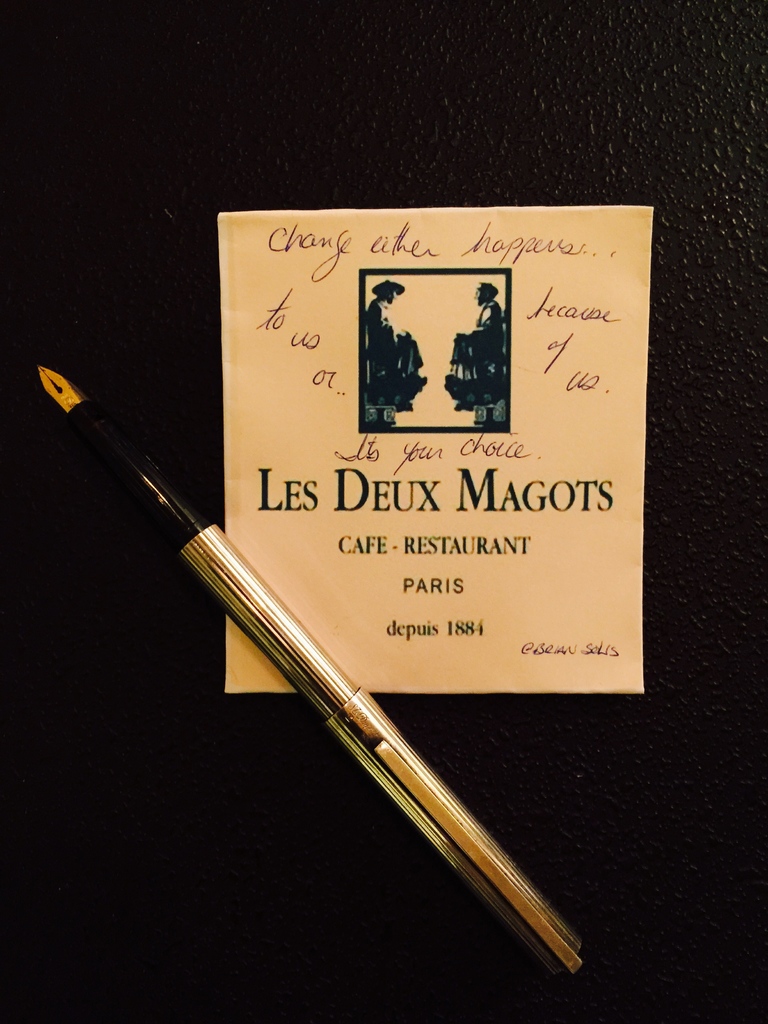 Change either happens...
to
us
or..
because
of
us.
It's your choice.
LES DEUX MAGOTS
CAFE - RESTAURANT
PARIS
depuis 1884
@BRIAN SOLIS